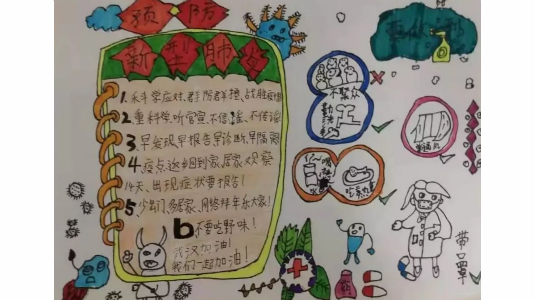 预防
新型肺炎
1.科学应对,群防群控,战胜疫情
2.重科学,听官宣,不信谣、不传谣
3.早发现,早报告,早诊断,早隔离
4.疫点返乡回到家,居家观察
14天,出现症状要报告!
5.少出门,多居家,网络拜年乐大家!
6不要吃野味!
武汉加油!
我们一起加油!
不聚众
勤洗手
带口罩